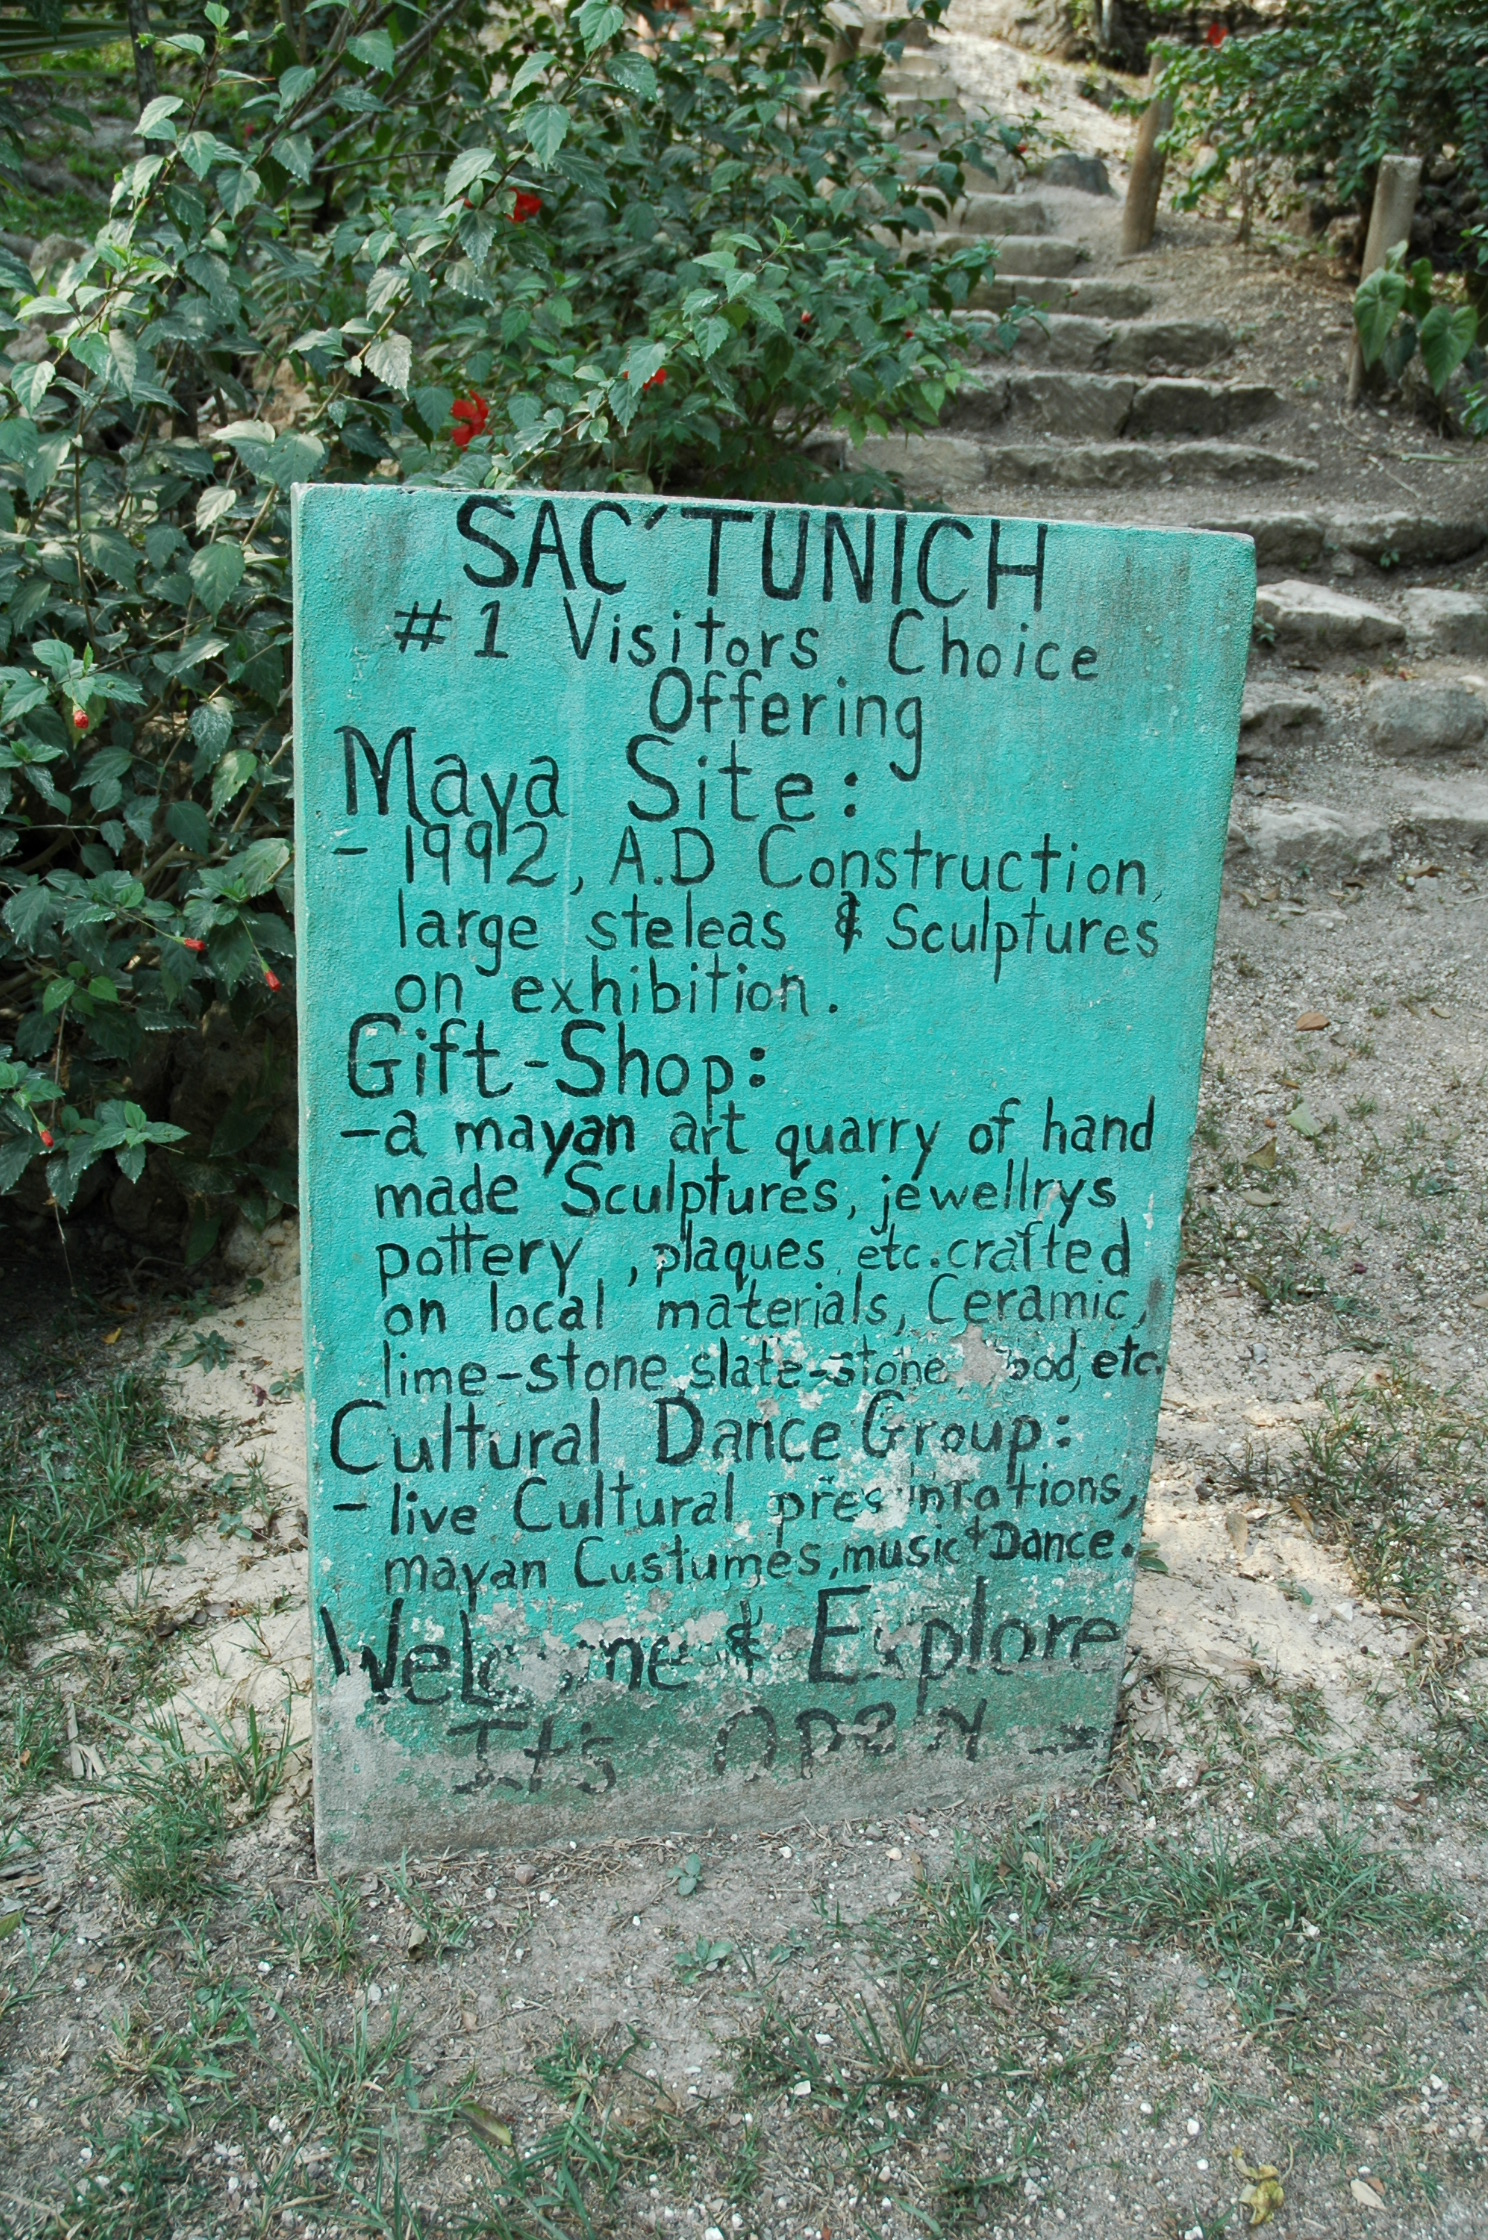 SAC'TUNICH
#1 Visitors Choice
Offering
Maya Site:
- 1992, A.D Construction,
large steleas & Sculptures
on exhibition.
Gift-Shop:
- a mayan art quarry of hand
made Sculptures, jewellrys
pottery , plaques, etc. crafted
on local materials, Ceramic,
lime-stone, slate-stone, etc.
Cultural Dance Group:
- live Cultural
mayan Custumes, music & Dance.
Welcome & Explore
It's open →